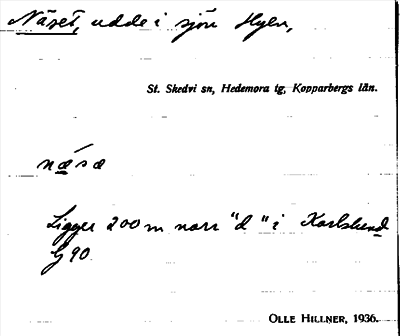 Näset, udde i sjön Hyen,
St. Skedvi sn, Hedemora tg, Kopparbergs län.
næsæ
Ligger 200 m norr "d" i Karlslund
G 90
OLLE HILLNER, 1936.